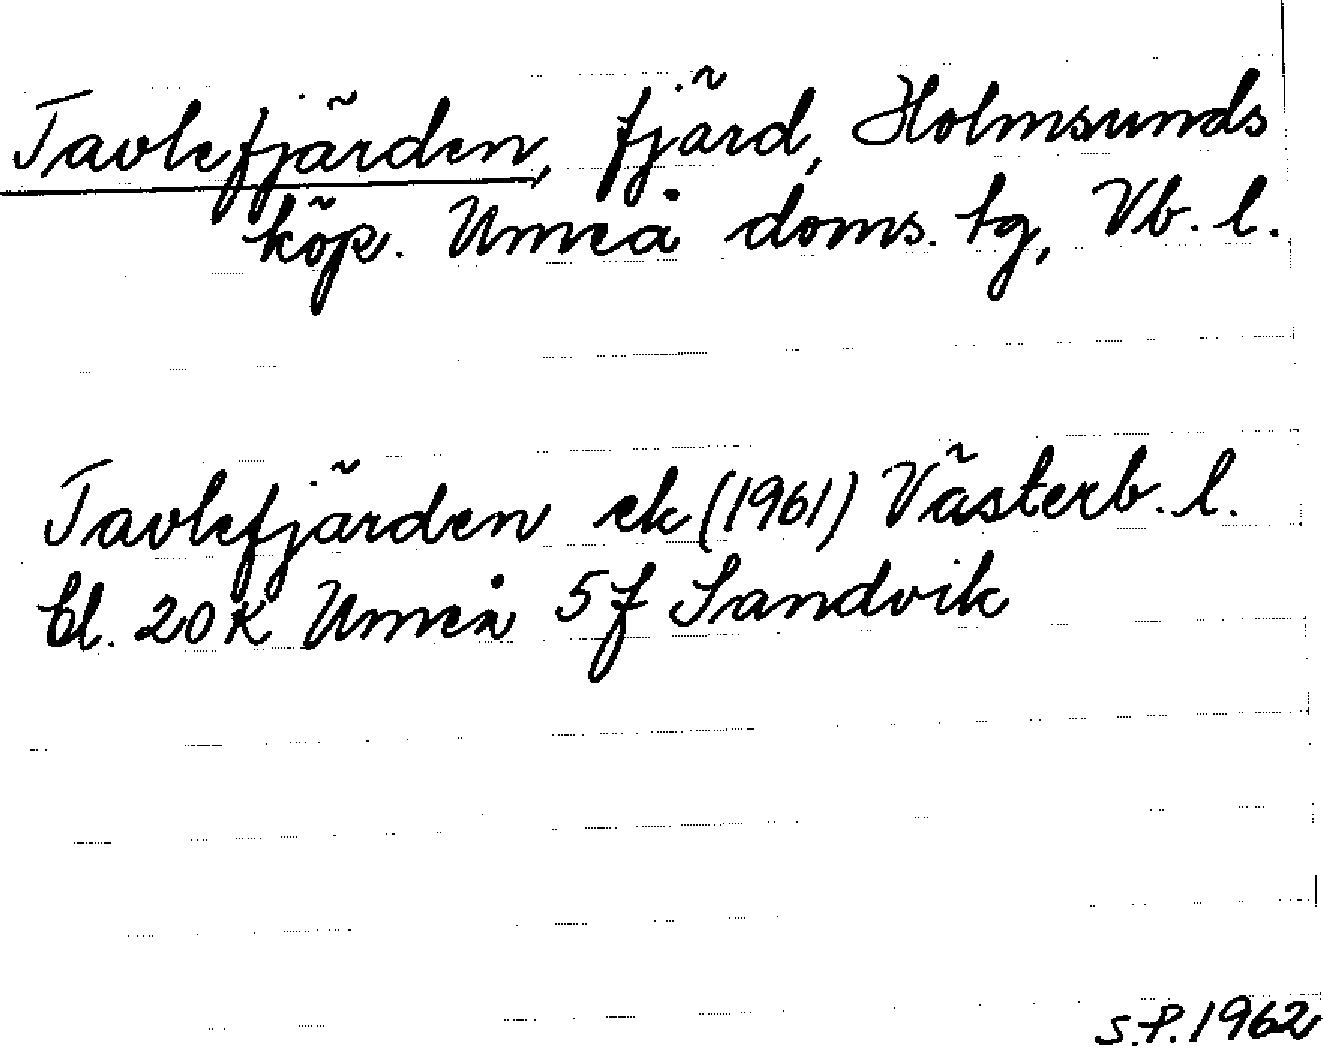 Tavlefjärden, fjärd, Holmsunds
köp. Umeå doms. tg, Vb. l.
Tavlefjärden ek (1961) Västerb. l.
bl. 20 K Umeå 5f Sandvik
S.P. 1962